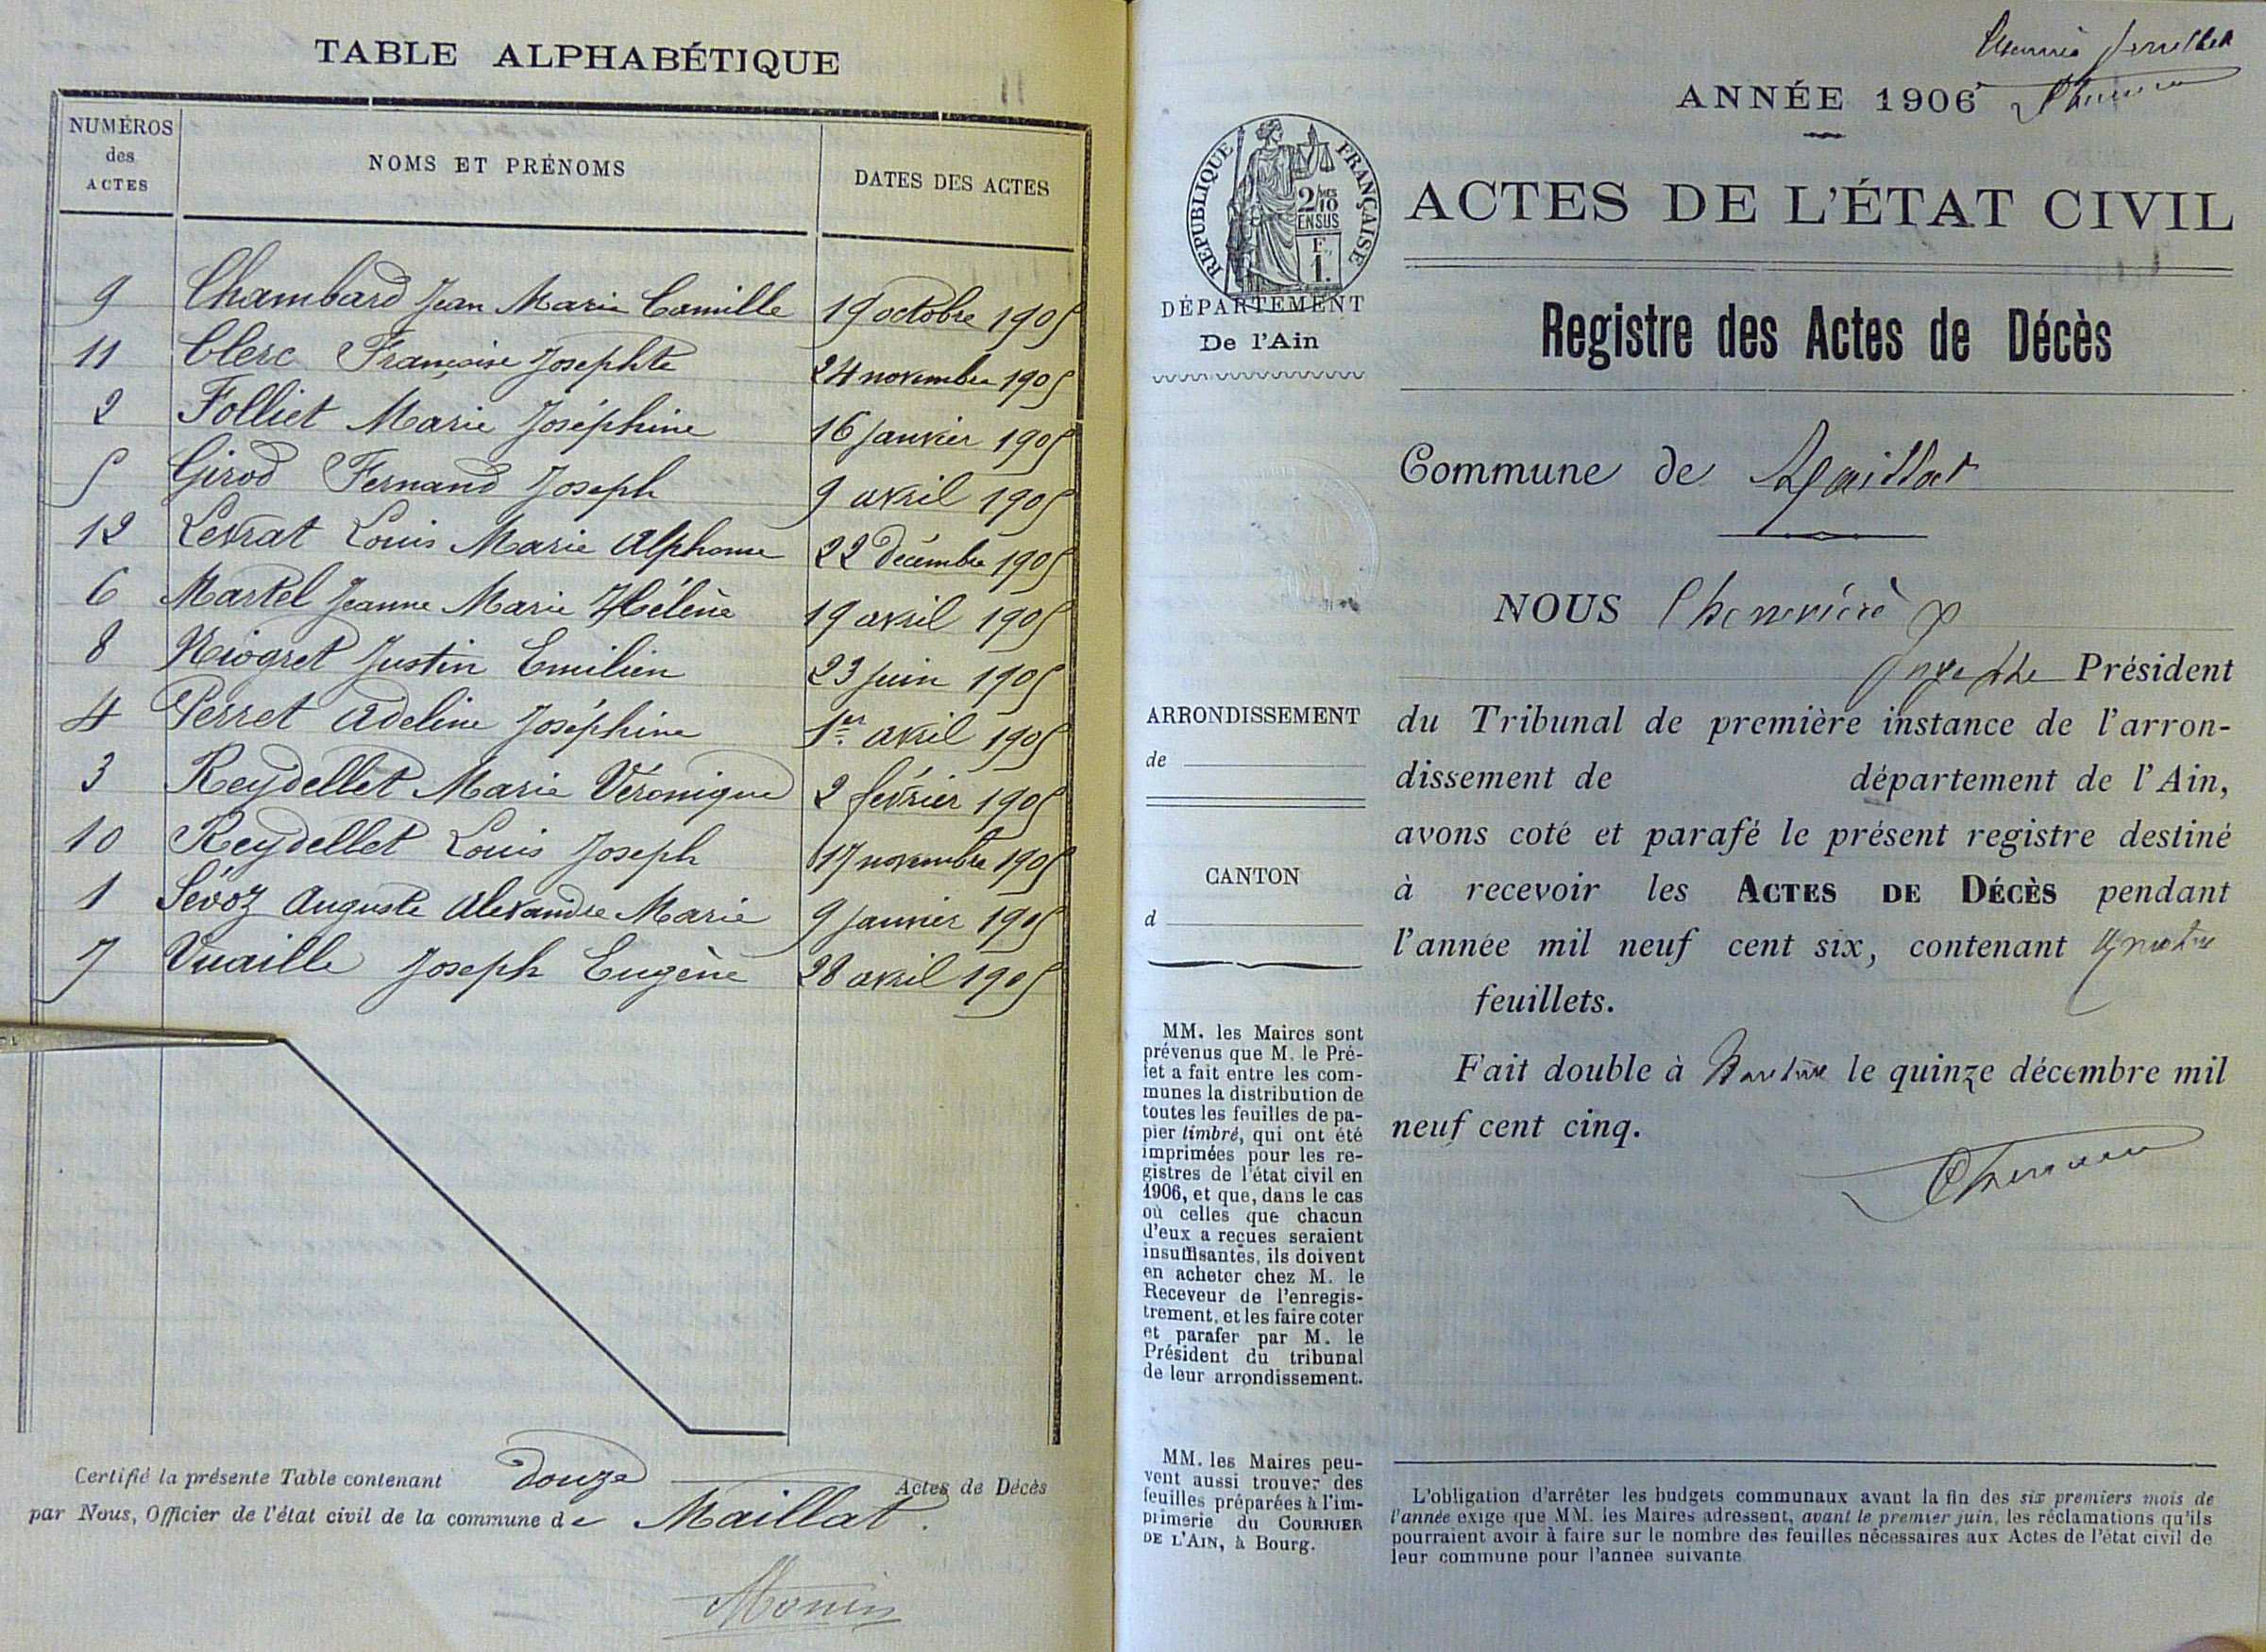 TABLE ALPHABÉTIQUE
NUMÉROS des ACTES
NOMS ET PRÉNOMS
DATES DES ACTES
9 Chambard Jean Marie Camille 19 octobre 1905
11 Clerc Françoise Josephte 24 novembre 1905
2 Folliet Marie Joséphine 16 janvier 1905
5 Girod Fernand Joseph 9 avril 1905
12 Levrat Louis Marie Alphonse 22 décembre 1905
6 Martel Jeanne Marie Hélène 19 avril 1905
8 Niogret Justin Emilien 23 juin 1905
4 Perret Adeline Joséphine 1er avril 1905
3 Reydellet Marie Véronique 2 février 1905
10 Reydellet Louis Joseph 17 novembre 1905
1 Sévoz Auguste Alexandre Marie 9 janvier 1905
7 Vuaille Joseph Eugène 28 avril 1905
Certifié la présente Table contenant douze Actes de Décès
par Nous, Officier de l'état civil de la commune de Maillat.
Monin
ANNÉE 1906
RÉPUBLIQUE FRANÇAISE
2/10 EN SUS
F. 1.
DÉPARTEMENT
De l'Ain
ACTES DE L'ÉTAT CIVIL
Registre des Actes de Décès
Commune de Maillat
NOUS
Président
du Tribunal de première instance de l'arron-
dissement de département de l'Ain,
avons coté et parafé le présent registre destiné
à recevoir les ACTES DE DÉCÈS pendant
l'année mil neuf cent six, contenant quatre
feuillets.
Fait double à Nantua le quinze décembre mil
neuf cent cinq.
ARRONDISSEMENT
de
CANTON
d
MM. les Maires sont
prévenus que M. le Pré-
fet a fait entre les com-
munes la distribution de
toutes les feuilles de pa-
pier timbré, qui ont été
imprimées pour les re-
gistres de l'état civil en
1906, et que, dans le cas
où celles que chacun
d'eux a reçues seraient
insuffisantes, ils doivent
en acheter chez M. le
Receveur de l'enregis-
trement, et les faire coter
et parafer par M. le
Président du tribunal
de leur arrondissement.
MM. les Maires peu-
vent aussi trouver des
feuilles préparées à l'im-
primerie du COURRIER
DE L'AIN, à Bourg.
L'obligation d'arrêter les budgets communaux avant la fin des six premiers mois de
l'année exige que MM. les Maires adressent, avant le premier juin, les réclamations qu'ils
pourraient avoir à faire sur le nombre des feuilles nécessaires aux Actes de l'état civil de
leur commune pour l'année suivante.